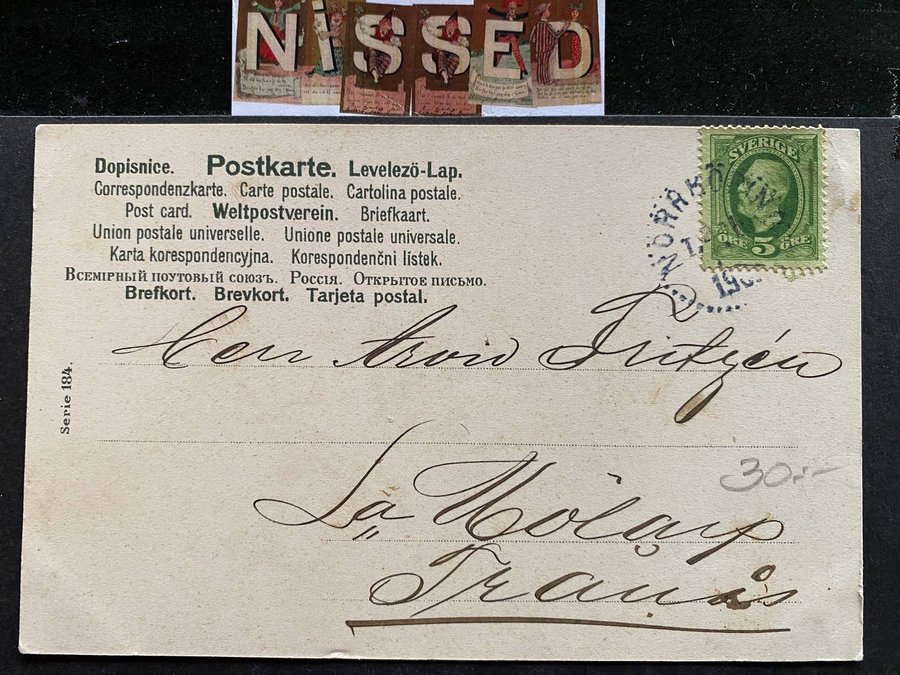 NiSSED
Dopisnice. Postkarte. Levelező-Lap.
Correspondenzkarte. Carte postale. Cartolina postale.
Post card. Weltpostverein. Briefkaart.
Union postale universelle. Unione postale universale.
Karta korespondencyjna. Korespondenční lístek.
Всемірный поутовый союзъ. Россія. Открытое письмо.
Brefkort. Brevkort. Tarjeta postal.
SVERIGE
ÖRE 5 ÖRE
NORRKÖPING
Serie 184.
Herr Aron Fritzén
30:-
La
Tranås